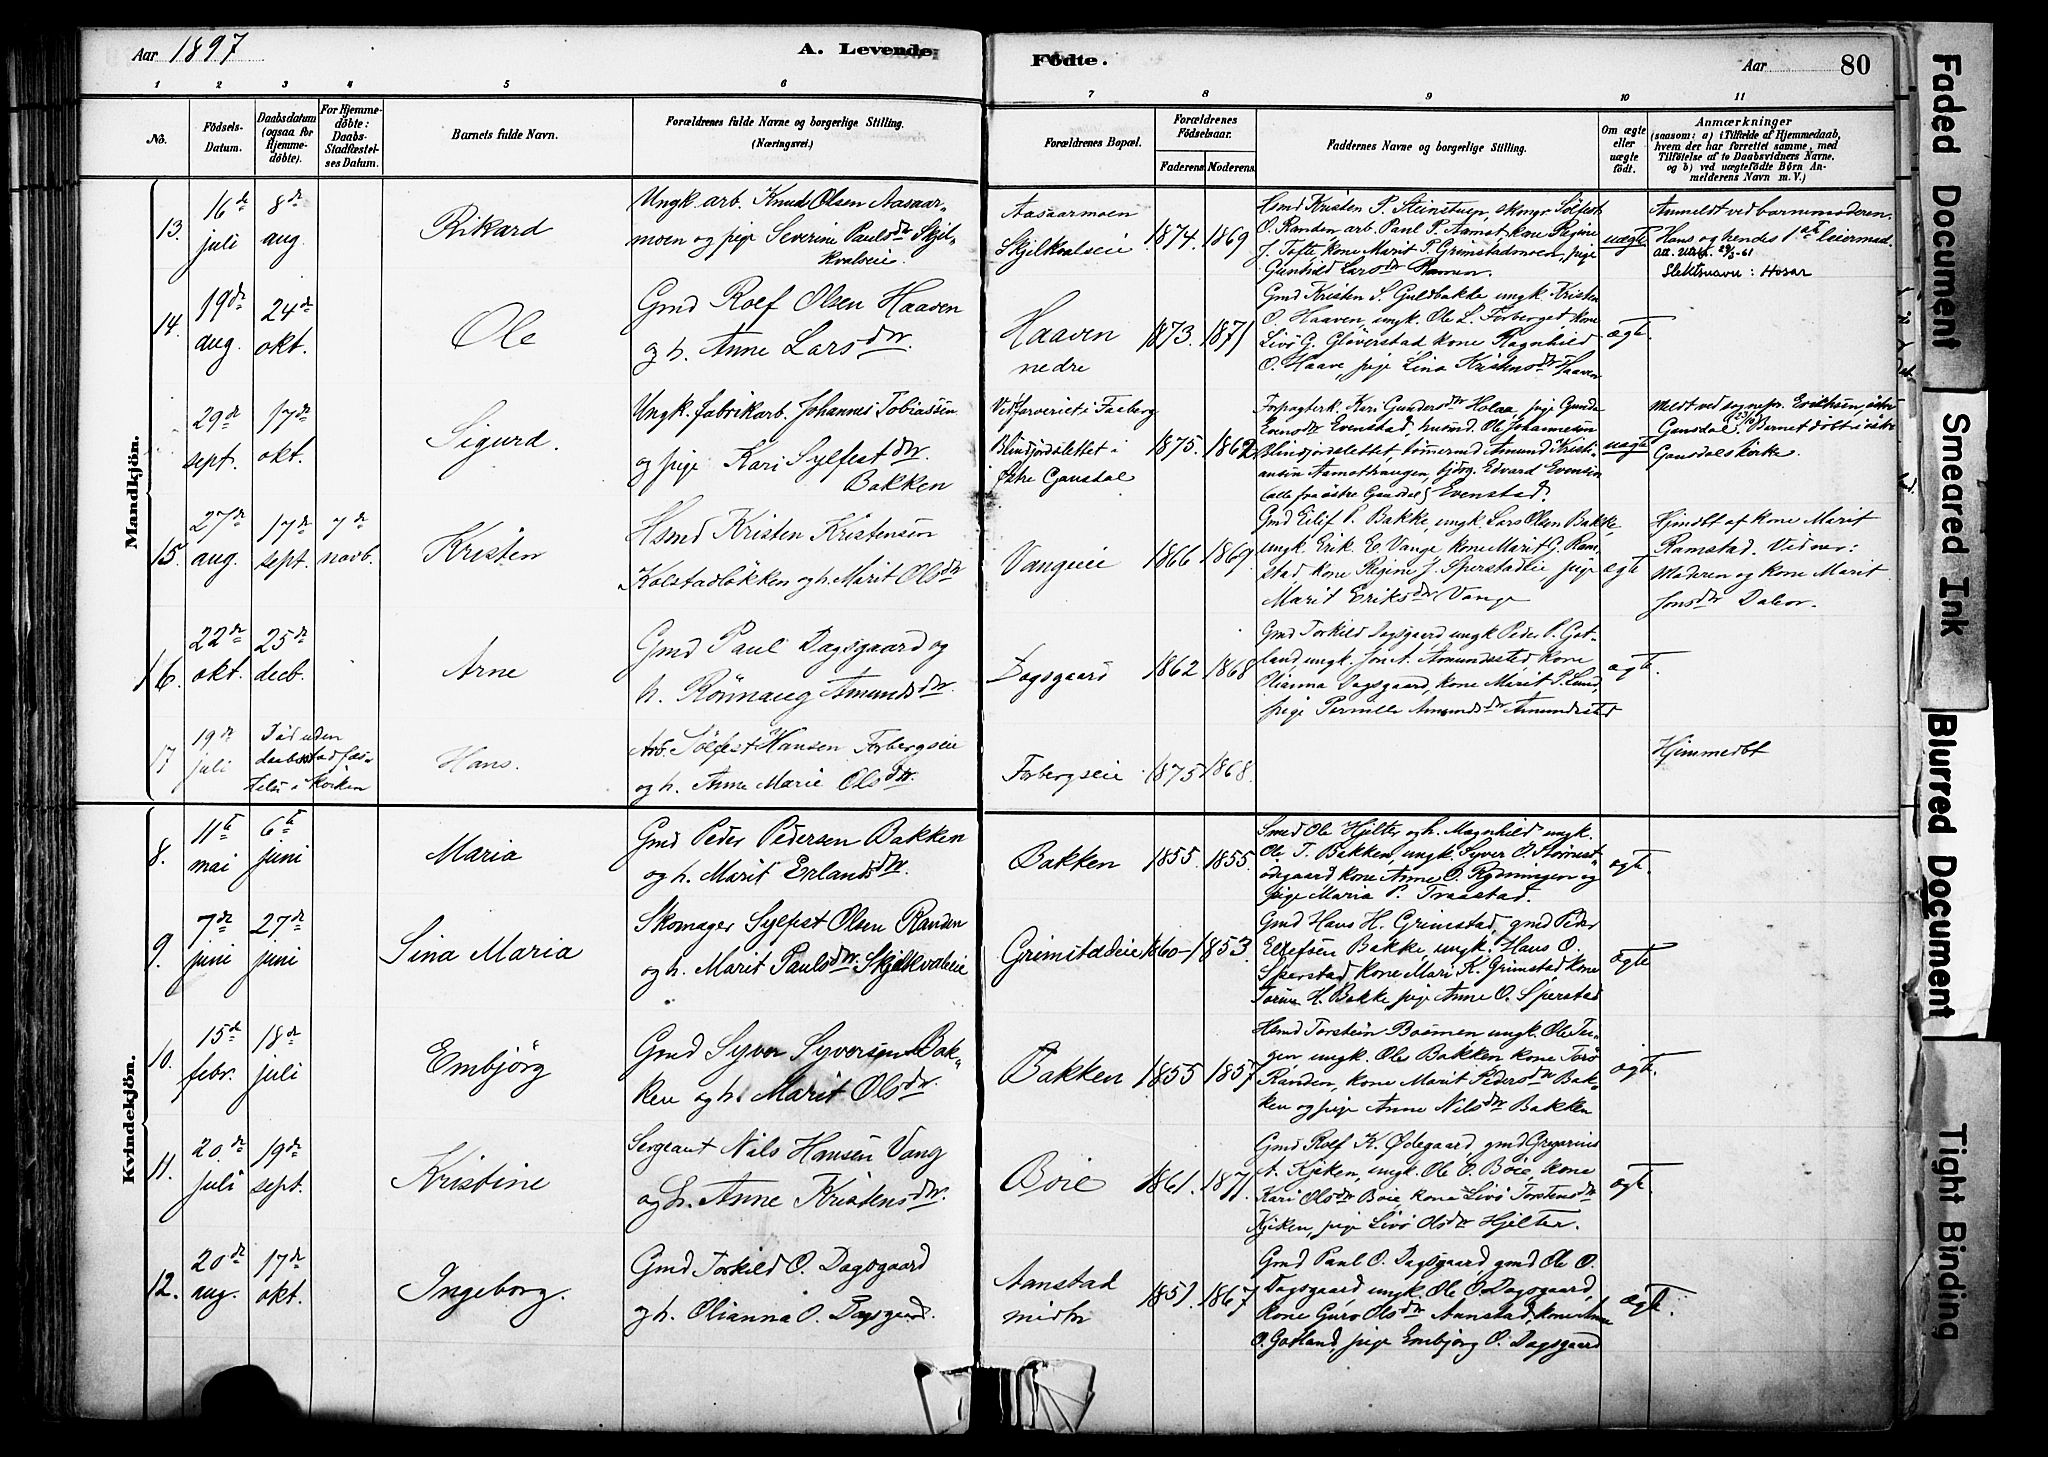 Aar 1897
A. Levende
Födte.
Aar
80
1 2 3 4 5 6 7 8 9 10 11
No.
Födsels-
Datum.
Daabsdatum
(ogsaa for
Hjemme-
döbte).
For Hjemme-
döbte:
Daabs-
Stadfæstel-
ses Datum.
Barnets fulde Navn.
Forældrenes fulde Navne og borgerlige Stilling.
(Næringsvei.)
Forældrenes Bopæl.
Forældrenes
Födselsaar.
Faderens
Moderens
Faddernes Navne og borgerlige Stilling.
Om ægte
eller
uægte
födt.
Anmærkninger
(saasom: a) i Tilfælde af Hjemmedaab,
hvem der har forrettet samme, med
Tilföielse af to Daabsvidners Navne.
og b) ved uægtefödte Börn An-
melderens Navn m. V.)
Mandkjön.
13.
16de
juli
8de
aug.
Rikard
Ungk. arb. Knud Olsen Aasaar-
moen og pige Severine Paulsdtr Skjel-
kvalseie.
Aasaarmoen
Skjelkvalseie
1874. 1869
Hsmd Kristen P. Steinstuen, skomgr Sölfest
O. Randen, arb. Paul P. Aamot, kone Regine
J. Tofte, kone Marit P. Grimstadmoen, pige
Gunhild Larsdtr
uægte
Anmeldt ved barnemoderen.
Hans og hendes 1ste leiermaal.
Slektsnavn: Hosar
14.
19de
aug.
24de
okt.
Ole
Gmd Rolf Olsen Haaven
og h. Anne Larsdtr.
Haaven
nedre
1873. 1871
Gmd Kristen S. Guldbakke ungk. Kristen
O. Haaven, ungk. Ole L. Forberget kone
Livö G. Glöverstad kone Ragnhild
O. Haave, pige Lina Kristensdtr Haaven
ægte.
29de
sept.
17de
okt.
Sigurd.
Ungk. fabrikarb. Johannes Tobiassen
og pige Kari Sylfestdtr.
Bakken
Ved farveriet i Faaberg
Blindjordslettet i
Östre Gausdal
1875. 1862
Forpagterk. Kari Gundersdtr Holaa, pige Gunda
Evensdtr Evenstad, husmd. Ole Johannessen
Blindjordslettet, tömmermd Amund Kristi-
ansen Aamothaugen, Edvard Evensen
(alle fra östre Gausdal) Evenstad.
uægte
Meldt ved sognepr. Erichsen, östre
Gausdal. Barnet döbt i östre
Gausdals kirke.
15.
27de
aug.
17de
sept.
7de
novb.
Kristen
Hsmd Kristen Kristensen
Kolstadlökken og h. Marit Olsdtr
Vangeie
1866 1869.
Gmd Eilif P. Bakke, ungk. Lars Olsen Bakke,
ungk. Erik E. Vange, kone Marit G. Ram-
stad, kone Regine J. Sperstadeie pige
Marit Eriksdtr Vange
ægte
Hjmdbt af kone Marit
Ramstad. Vidner:
Moderen og kone Marit
Jonsdtr
16.
22de
okt.
25de
decb.
Arne
Gmd Paul Dagsgaard og
h. Rönnaug Amundsdtr.
Dagsgaard
1862 1868
Gmd Torkild Dagsgaard ungk Peder P. Got-
land, ungk. Jon A. Amundstad kone
Olianna Dagsgaard, kone Marit P. Lund,
pige Pernille Amundsdtr Amundstad
ægte.
17
19de
juli
Död uden
daabsstadfæs-
telse i kirken
Hans.
Arb. Sölfest Hansen Forbergseie
og h. Anne Marie Olsdtr.
Forbergseie
1875 1868.
Hjemmedbt
Kvindekjön.
8.
11te
mai
6te
juni
Maria
Gmd Peder Pedersen Bakken
og h. Marit Erlandsdtr.
Bakken
1855. 1855.
Smed Ole Hjelter og h. Magnhild ungk.
Ole T. Bakken, ungk. Syver O.
ödegaard kone Anne O. og
pige Maria P. Traastad.
ægte.
9.
7de
juni
27de
juni
Sina Maria
Skomager Sylfest Olsen Randen
og h. Marit Paulsdtr Skjelkvaleie
Grimstadeie
1860 1853.
Gmd Hans H. Grimstad, gmd Peder
Ellefsen Bakke, ungk. Hans O.
Sperstad, kone Mari K. Grimstad kone
H. Bakke, pige Anne O. Sperstad
ægte
10.
15de
febr.
18de
juli
Embjörg
Gmd Syver Syversen Bak-
ken og h. Marit Olsdtr.
Bakken
1855 1857
Hsmd Torstein ungk. Ole
ungk. Ole Bakken kone Torö
Randen, kone Marit Pedersdtr Bak-
ken og pige Anne Nilsdtr Bakken
ægte.
11.
20de
juli
19de
sept.
Kristine
Sergeant Nils Hansen Vang
og h. Anne Kristensdtr.
Böie
1861. 1871.
Gmd Rolf K. Ödegaard, gmd Gregarius
A. Kjöken, ungk. Ole O. Böie, kone
Kari Olsdtr Böie, kone Livö Torstensdtr
Kjöken, pige Livö Olsdtr Hjelter.
ægte.
12.
20de
aug.
17de
okt.
Ingeborg.
Gmd Torkild O. Dagsgaard
og h. Olianna O. Dagsgaard.
Aanstad
midtre
1851. 1867
Gmd Paul O. Dagsgaard, gmd Ole O.
Dagsgaard ungk. Ole O. Dagsgaard,
kone Guro Olsdtr Aanstad, kone Anne
O. Gotland, pige Embjörg O. Dagsgaard
ægte.
Faded Document
Smeared Ink
Blurred Document
Tight Binding